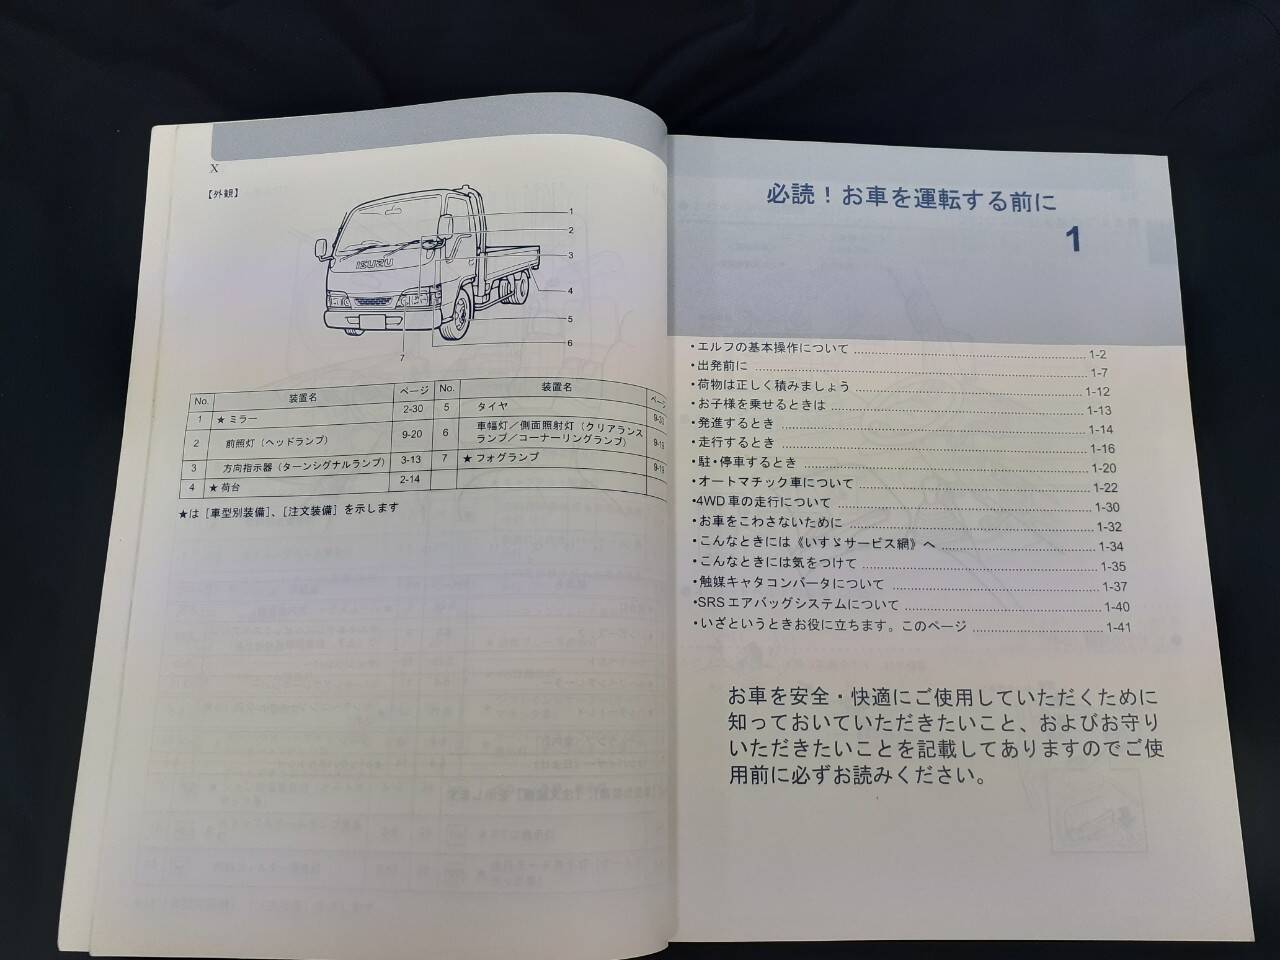 X
【外観】
ISUZU
1
2
3
4
5
6
7
No. 装置名 ページ No. 装置名 ページ
1 ★ミラー 2-30 5 タイヤ 9-30
2 前照灯（ヘッドランプ） 9-20 6 車幅灯／側面照射灯（クリアランス
ランプ／コーナーリングランプ）
3 方向指示器（ターンシグナルランプ） 3-13 7 ★フォグランプ
4 ★荷台 2-14
★は［車型別装備］、［注文装備］を示します
必読！お車を運転する前に
1
・エルフの基本操作について 1-2
・出発前に 1-7
・荷物は正しく積みましょう 1-12
・お子様を乗せるときは 1-13
・発進するとき 1-14
・走行するとき 1-16
・駐・停車するとき 1-20
・オートマチック車について 1-22
・4WD車の走行について 1-30
・お車をこわさないために 1-32
・こんなときには《いすゞサービス網》へ 1-34
・こんなときには気をつけて 1-35
・触媒キャタコンバータについて 1-37
・SRSエアバッグシステムについて 1-40
・いざというときお役に立ちます。このページ 1-41
お車を安全・快適にご使用していただくために
知っておいていただきたいこと、およびお守り
いただきたいことを記載してありますのでご使
用前に必ずお読みください。